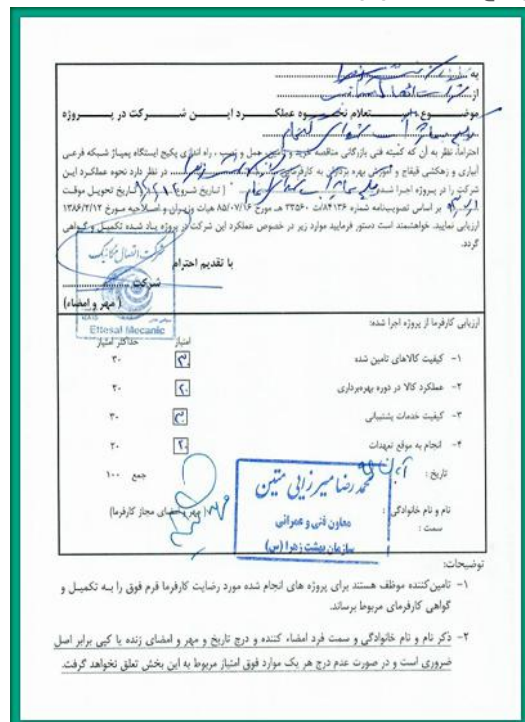 به
از شرکت اتصال مکانیک
موضوع: استعلام نحوه عملکرد این شرکت در پروژه
احتراما، نظر به آن که کمیته فنی بازرگانی مناقصه خرید و تامین، حمل و نصب، راه اندازی پکیج ایستگاه پمپاژ شبکه فرعی
آبیاری و زهکشی قیفاج و آموزش بهره برداری به کارفرما در نظر دارد نحوه عملکرد این
شرکت را در پروژه اجرا شده " [تاریخ شروع تاریخ تحویل موقت
بر اساس تصویبنامه شماره ۸۴۱۳۶/ت ۳۳۵۶۰ هـ مورخ ۸۵/۰۷/۱۶ هیات وزیران و اصلاحیه مورخ ۱۳۸۶/۴/۱۲
ارزیابی نمایید. خواهشمند است دستور فرمایید موارد زیر در خصوص عملکرد این شرکت در پروژه یاد شده تکمیل و گواهی
گردد.
با تقدیم احترام
شرکت
(مهر و امضاء)
شرکت اتصال مکانیک
Ettesal Mecanic
ارزیابی کارفرما از پروژه اجرا شده:
امتیاز حداکثر امتیاز
۱- کیفیت کالاهای تامین شده ۳۰ ۳۰
۲- عملکرد کالا در دوره بهره‌برداری ۲۰ ۲۰
۳- کیفیت خدمات پشتیبانی ۳۰ ۳۰
۴- انجام به موقع تعهدات ۲۰ ۲۰
تاریخ: جمع ۱۰۰
نام و نام خانوادگی: (مهر و امضای مجاز کارفرما)
سمت:
محمدرضا میرزایی متین
معاون فنی و عمرانی
سازمان بهشت زهرا (س)
توضیحات:
۱- تامین‌کننده موظف هستند برای پروژه های انجام شده مورد رضایت کارفرما فرم فوق را به تکمیل و
گواهی کارفرمای مربوط برساند.
۲- ذکر نام و نام خانوادگی و سمت فرد امضاء کننده و درج تاریخ و مهر و امضای زنده یا کپی برابر اصل
ضروری است و در صورت عدم درج هر یک موارد فوق امتیاز مربوط به این بخش تعلق نخواهد گرفت.